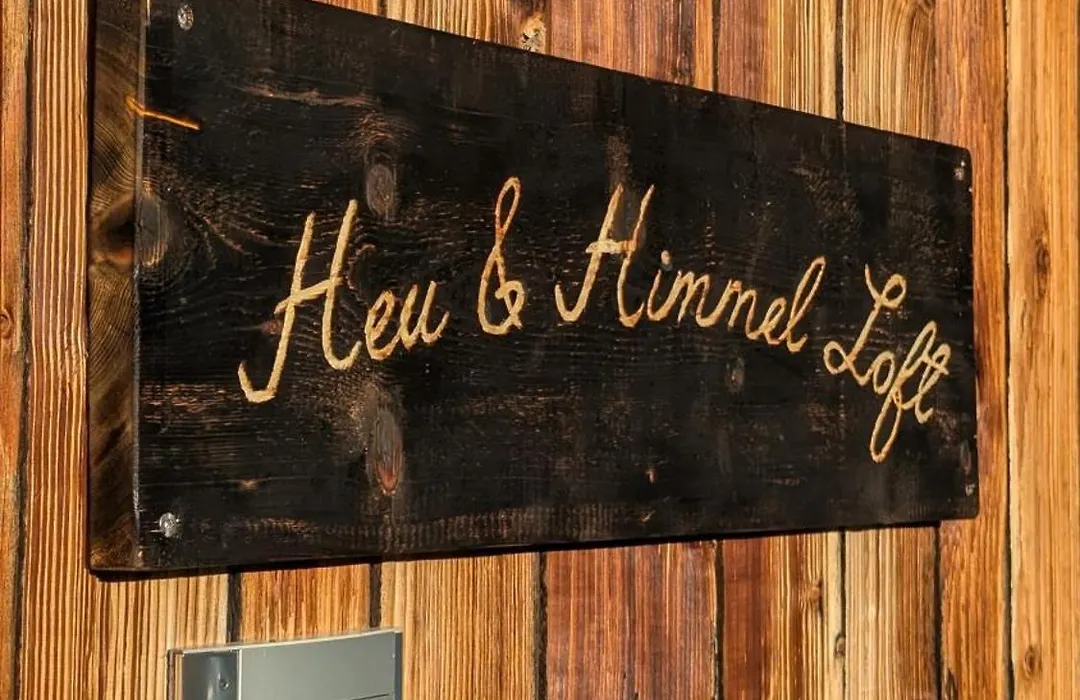 Heu & Himmel Loft